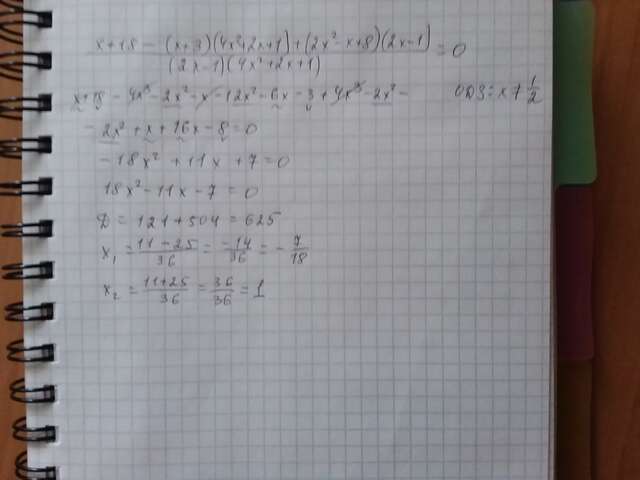 x+18 - (x+3)(4x²+2x+1)+(2x²-x+8)(2x-1)
(2x-1)(4x²+2x+1) =0
x+18-4x³-2x²-x-12x²-6x-3+4x³-2x²- ОДЗ: x≠1/2
-2x²+x+16x-8=0
-18x²+11x+7=0
18x²-11x-7=0
D=121+504=625
x₁=11-25/36=-14/36=-7/18
x₂=11+25/36=36/36=1